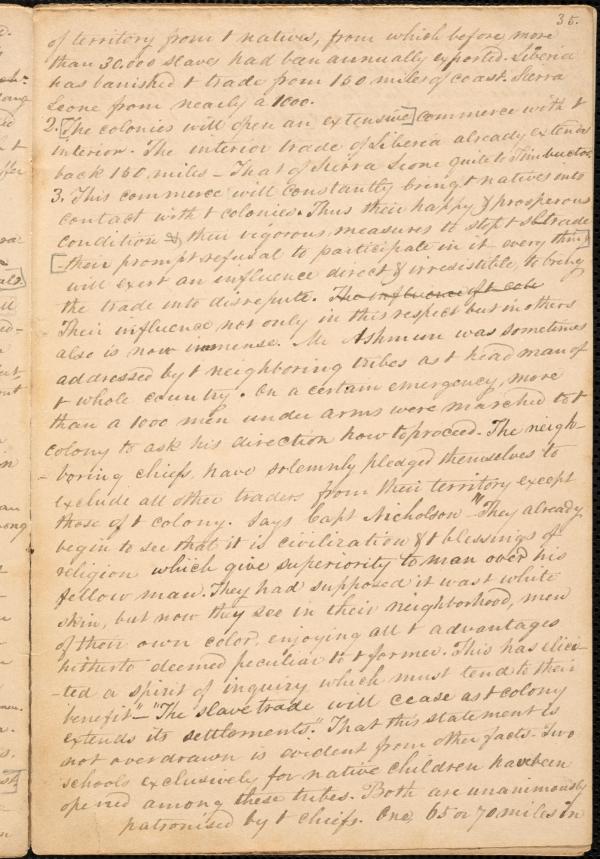 35.
of territory from t natives, from which before more
than 30.000 slaves had been annually exported. Liberia
has banished t trade from 150 miles of coast. Sierra
Leone from nearly a 1000.
2. [The colonies will open an extensive] commerce with t
interior. The interior trade of Liberia already extends
back 150 miles – That of Sierra Leone quite to Timbuctoo.
3. This commerce will constantly bring t natives into
contact with t colonies. Thus their happy & prosperous
condition & their vigorous measures to stop t sl trade
[– their prompt refusal to participate in it every thing]
will exert an influence direct & irresistible, to bring
the trade into disrepute. The influence of t colo
Their influence not only in this respect but in others
also is now immense. Mr Ashmun was sometimes
addressed by t neighboring tribes as t head man of
t whole country. On a certain emergency, more
than a 1000 men under arms were marched to t
colony to ask his direction how to proceed. The neigh-
-boring chiefs, have solemnly pledged themselves to
exclude all other traders from their territory except
those of t colony. Says Capt Nicholson "They already
begin to see that it is civilization & t blessings of
religion which give superiority to man over his
fellow man. They had supposed it was t white
skin, but now they see in their neighborhood, men
of their own color, enjoying all t advantages
hitherto deemed peculiar to t former. This has elici-
-ted a spirit of inquiry which must tend to their
benefit" – "The slave trade will cease as t colony
extends its settlements." That this statement is
not overdrawn is evident from other facts. Two
schools exclusively for native children have been
opened among these tribes. Both are unanimously
patronised by t chiefs. One, 65 or 70 miles in